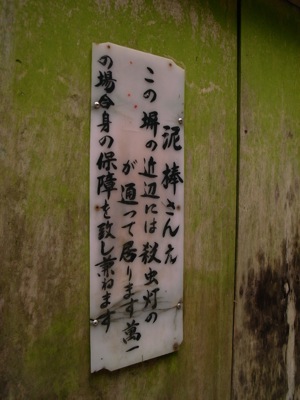 泥棒さんへ
この塀の近辺には殺虫灯の
が通って居ります萬一
の場合身の保障を致し兼ねます